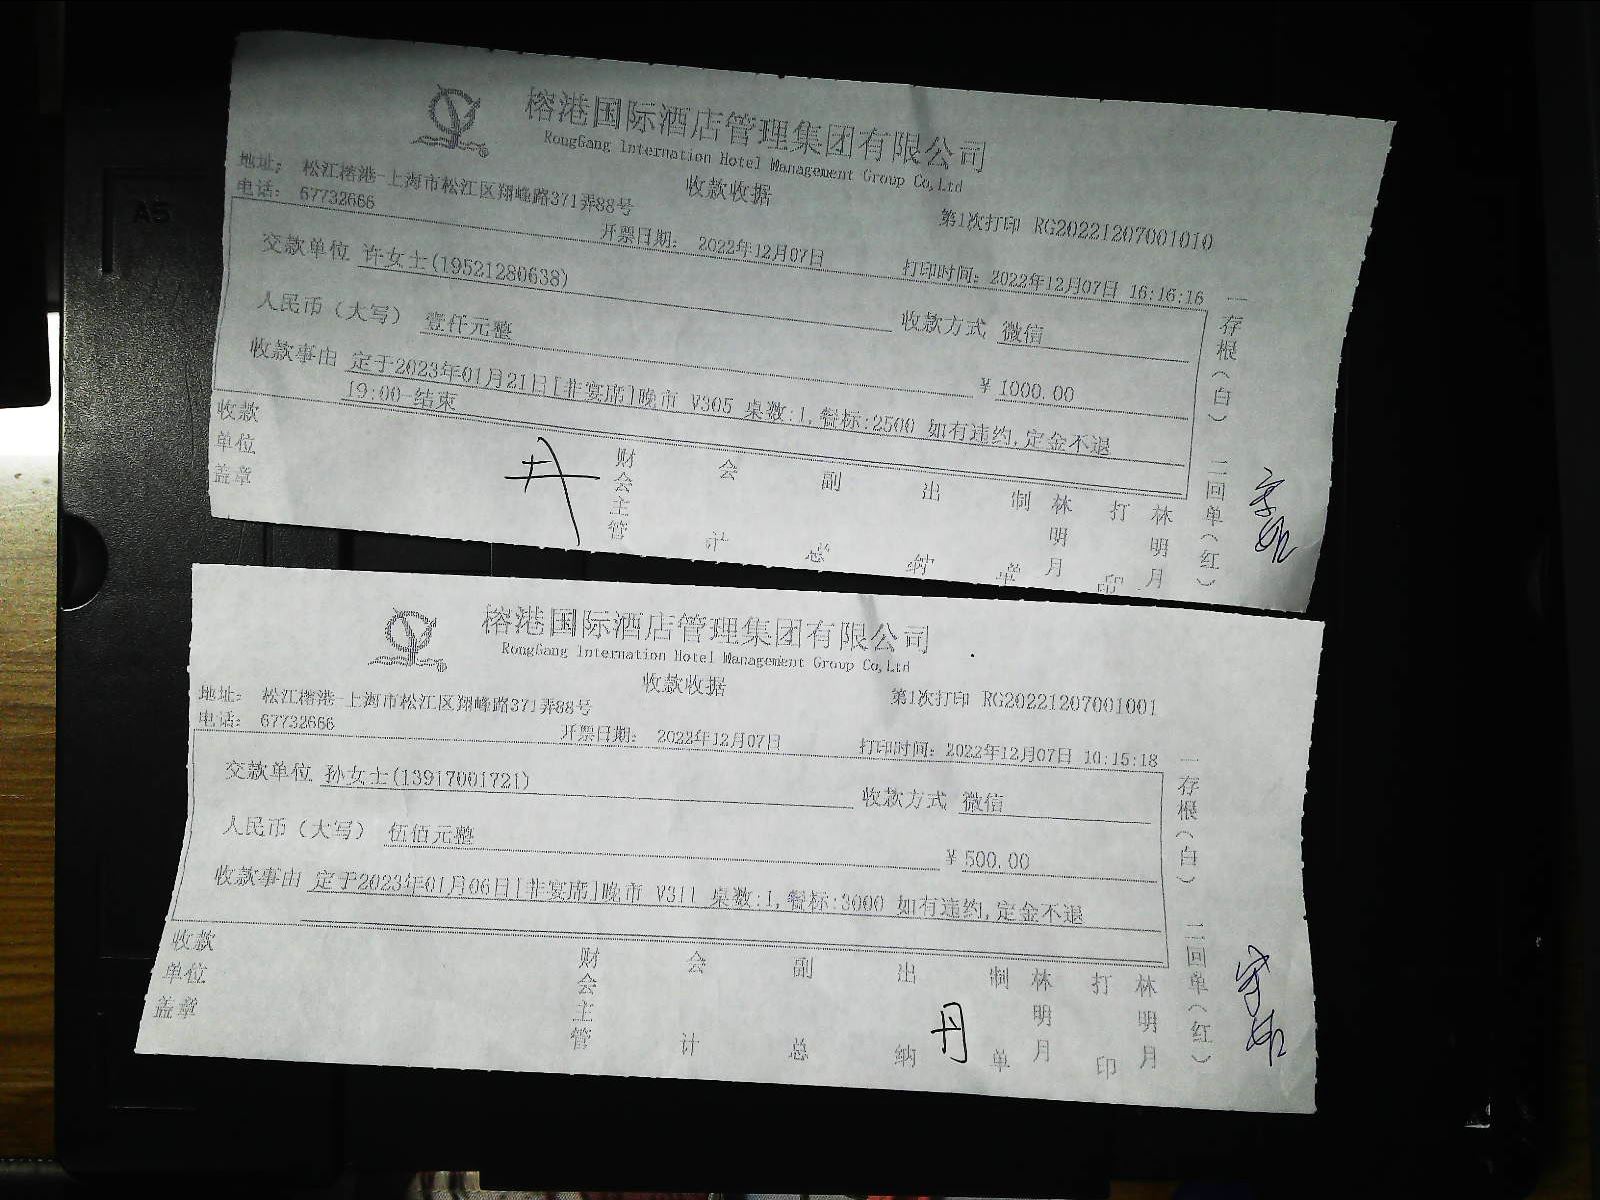 榕港国际酒店管理集团有限公司
RongGang Internation Hotel Management Group Co,Ltd
收款收据
地址： 松江榕港-上海市松江区翔峰路371弄88号
第1次打印 RG20221207001010
电话： 67732666
开票日期： 2022年12月07日
打印时间：2022年12月07日 16:16:16
交款单位 许女士(19521280638)
收款方式 微信
人民币（大写） 壹仟元整
¥ 1000.00
收款事由 定于2023年01月21日[非宴席]晚市 V305 桌数:1,餐标:2500 如有违约,定金不退
19:00-结束
收款单位盖章
财会主管
会计
副总
出纳
制单
林明月
打印
林明月
一存根（白）
二回单（红）
榕港国际酒店管理集团有限公司
RongGang Internation Hotel Management Group Co,Ltd
收款收据
地址： 松江榕港-上海市松江区翔峰路371弄88号
第1次打印 RG20221207001001
电话： 67732666
开票日期： 2022年12月07日
打印时间：2022年12月07日 10:15:18
交款单位 孙女士(13917001721)
收款方式 微信
人民币（大写） 伍佰元整
¥ 500.00
收款事由 定于2023年01月06日[非宴席]晚市 V311 桌数:1,餐标:3000 如有违约,定金不退
收款单位盖章
财会主管
会计
副总
出纳
丹
制单
林明月
打印
林明月
一存根（白）
二回单（红）
A5